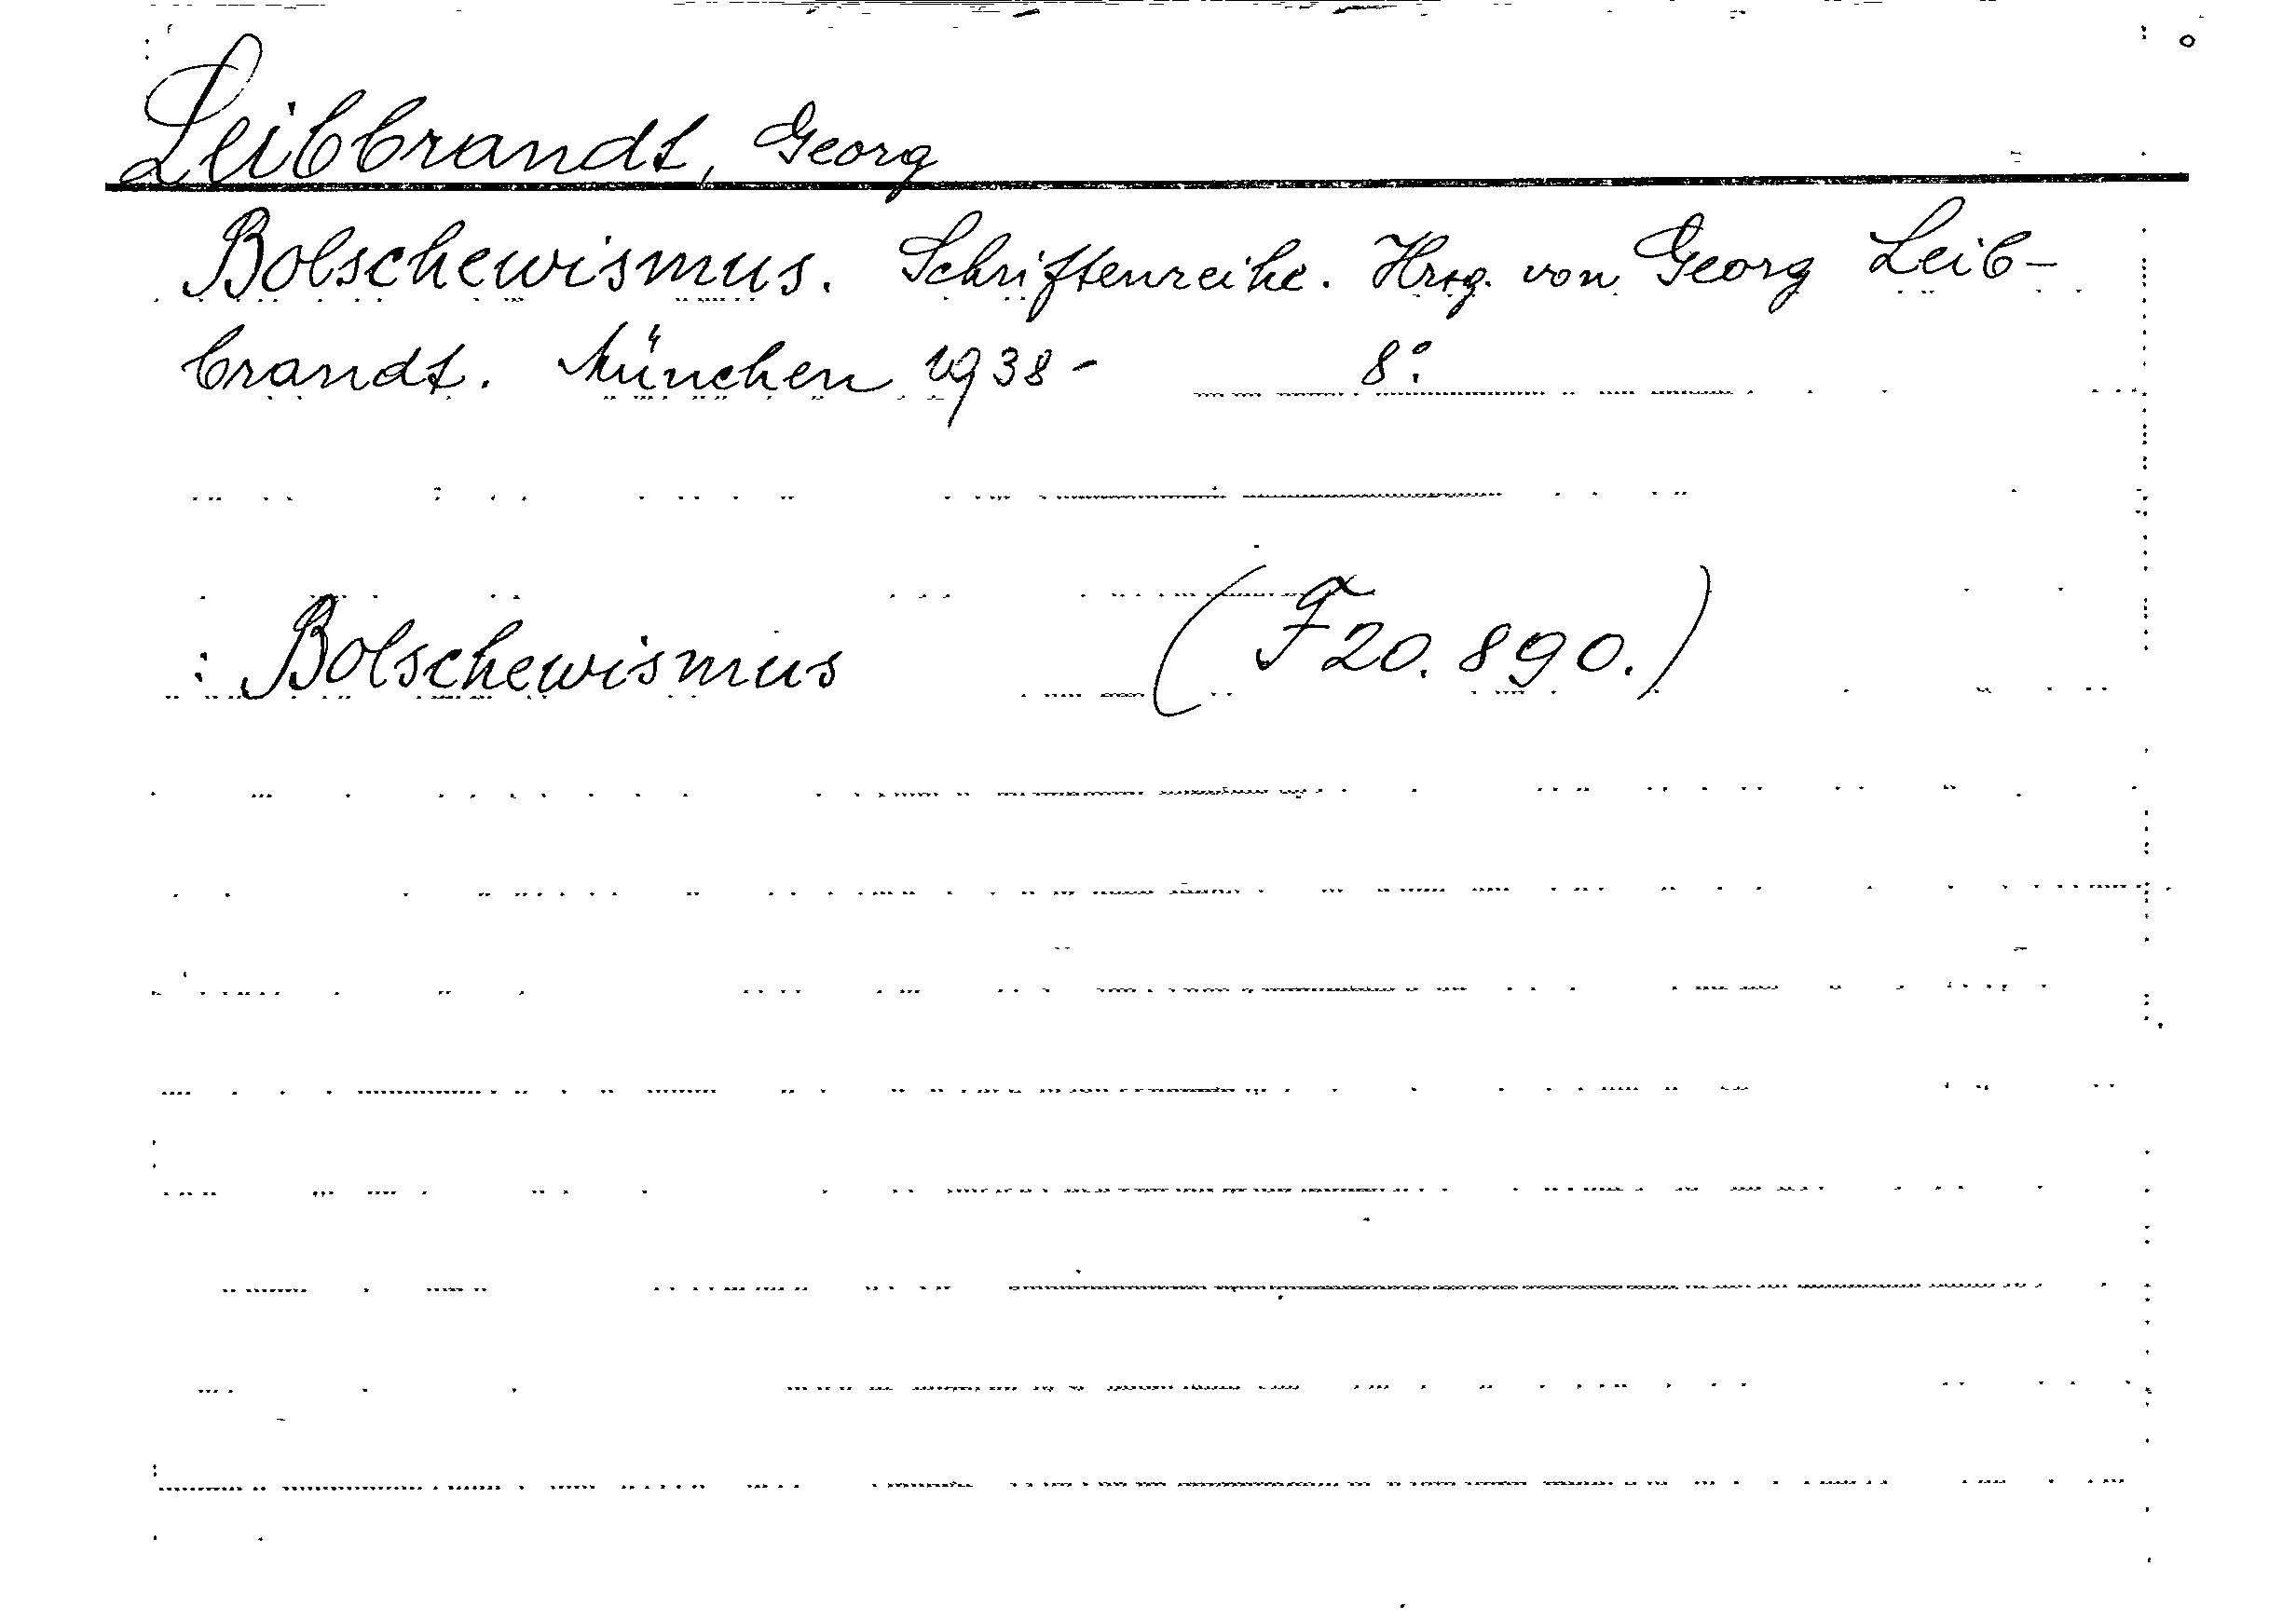 Leibbrandt, Georg
Bolschewismus. Schriftenreihe. Hrsg. von Georg Leib-
brandt. München 1938- 8°.
: Bolschewismus (F 20.890.)